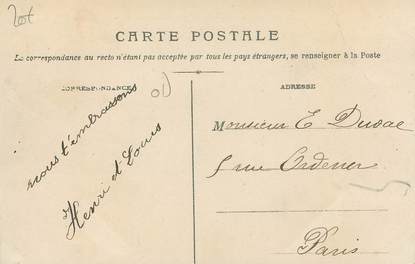 Lot
CARTE POSTALE
La correspondance au recto n'étant pas acceptée par tous les pays étrangers, se renseigner à la Poste
CORRESPONDANCE
ADRESSE
nous t'embrassons
Henri et Louis
Monsieur E Duval
5 rue Ordener
Paris